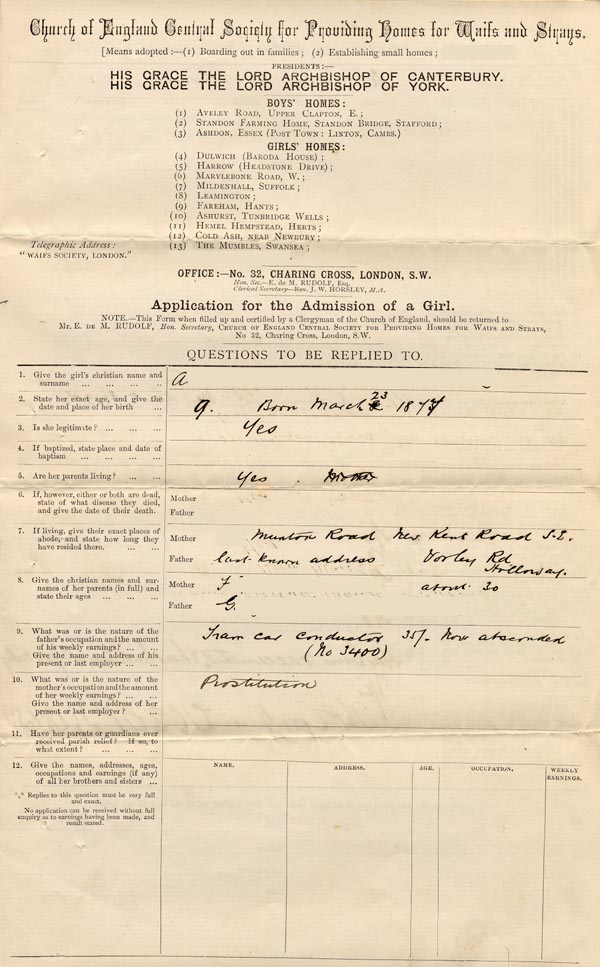 Church of England Central Society for Providing Homes for Waifs and Strays.
[Means adopted :—(1) Boarding out in families ; (2) Establishing small homes ;
PRESIDENTS :—
HIS GRACE THE LORD ARCHBISHOP OF CANTERBURY.
HIS GRACE THE LORD ARCHBISHOP OF YORK.
BOYS' HOMES :
(1) Aveley Road, Upper Clapton, E. ;
(2) Standon Farming Home, Standon Bridge, Stafford ;
(3) Ashdon, Essex (Post Town : Linton, Cambs.)
GIRLS' HOMES :
(4) Dulwich (Baroda House) ;
(5) Harrow (Headstone Drive) ;
(6) Marylebone Road, W. ;
(7) Mildenhall, Suffolk ;
(8) Leamington ;
(9) Fareham, Hants ;
(10) Ashurst, Tunbridge Wells ;
(11) Hemel Hempstead, Herts ;
(12) Cold Ash, near Newbury ;
(13) The Mumbles, Swansea ;
Telegraphic Address :
"WAIFS SOCIETY, LONDON."
OFFICE :—No. 32, CHARING CROSS, LONDON, S.W.
Hon. Sec.—E. de M. RUDOLF, Esq.
Clerical Secretary—Rev. J. W. HORSLEY, M.A.
Application for the Admission of a Girl.
NOTE.—This Form when filled up and certified by a Clergyman of the Church of England, should be returned to
Mr. E. DE M. RUDOLF, Hon. Secretary, Church of England Central Society for Providing Homes for Waifs and Strays,
No 32, Charing Cross, London, S.W.
QUESTIONS TO BE REPLIED TO.
1. Give the girl's christian name and
surname ... ... ... ..
A
2. State her exact age, and give the
date and place of her birth ...
9. Born March 23 1877
3. Is she legitimate ? ... ... ...
Yes
4. If baptized, state place and date of
baptism ... ... ... ...
5. Are her parents living ? ... ...
Yes .
6. If, however, either or both are dead,
state of what disease they died,
and give the date of their death.
Mother
Father
7. If living, give their exact places of
abode, and state how long they
have resided there. ... ...
Mother Munton Road New Kent Road S.E.
Father last known address Vorley Rd
Holloway.
8. Give the christian names and sur-
names of her parents (in full) and
state their ages ... ... ...
Mother F about 30
Father G.
9. What was or is the nature of the
father's occupation and the amount
of his weekly earnings? ... ...
Give the name and address of his
present or last employer ... ..
Tram car conductor 35/- Now absconded
(No 3400)
10. What was or is the nature of the
mother's occupation and the amount
of her weekly earnings? ... ...
Give the name and address of her
present or last employer ? ...
Prostitution
11. Have her parents or guardians ever
received parish relief? If so, to
what extent ? ... ... ...
12. Give the names, addresses, ages,
occupations and earnings (if any)
of all her brothers and sisters ...
*.* Replies to this question must be very full
and exact.
No application can be received without full
enquiry as to earnings having been made, and
result stated.
NAME. ADDRESS. AGE. OCCUPATION. WEEKLY
EARNINGS.